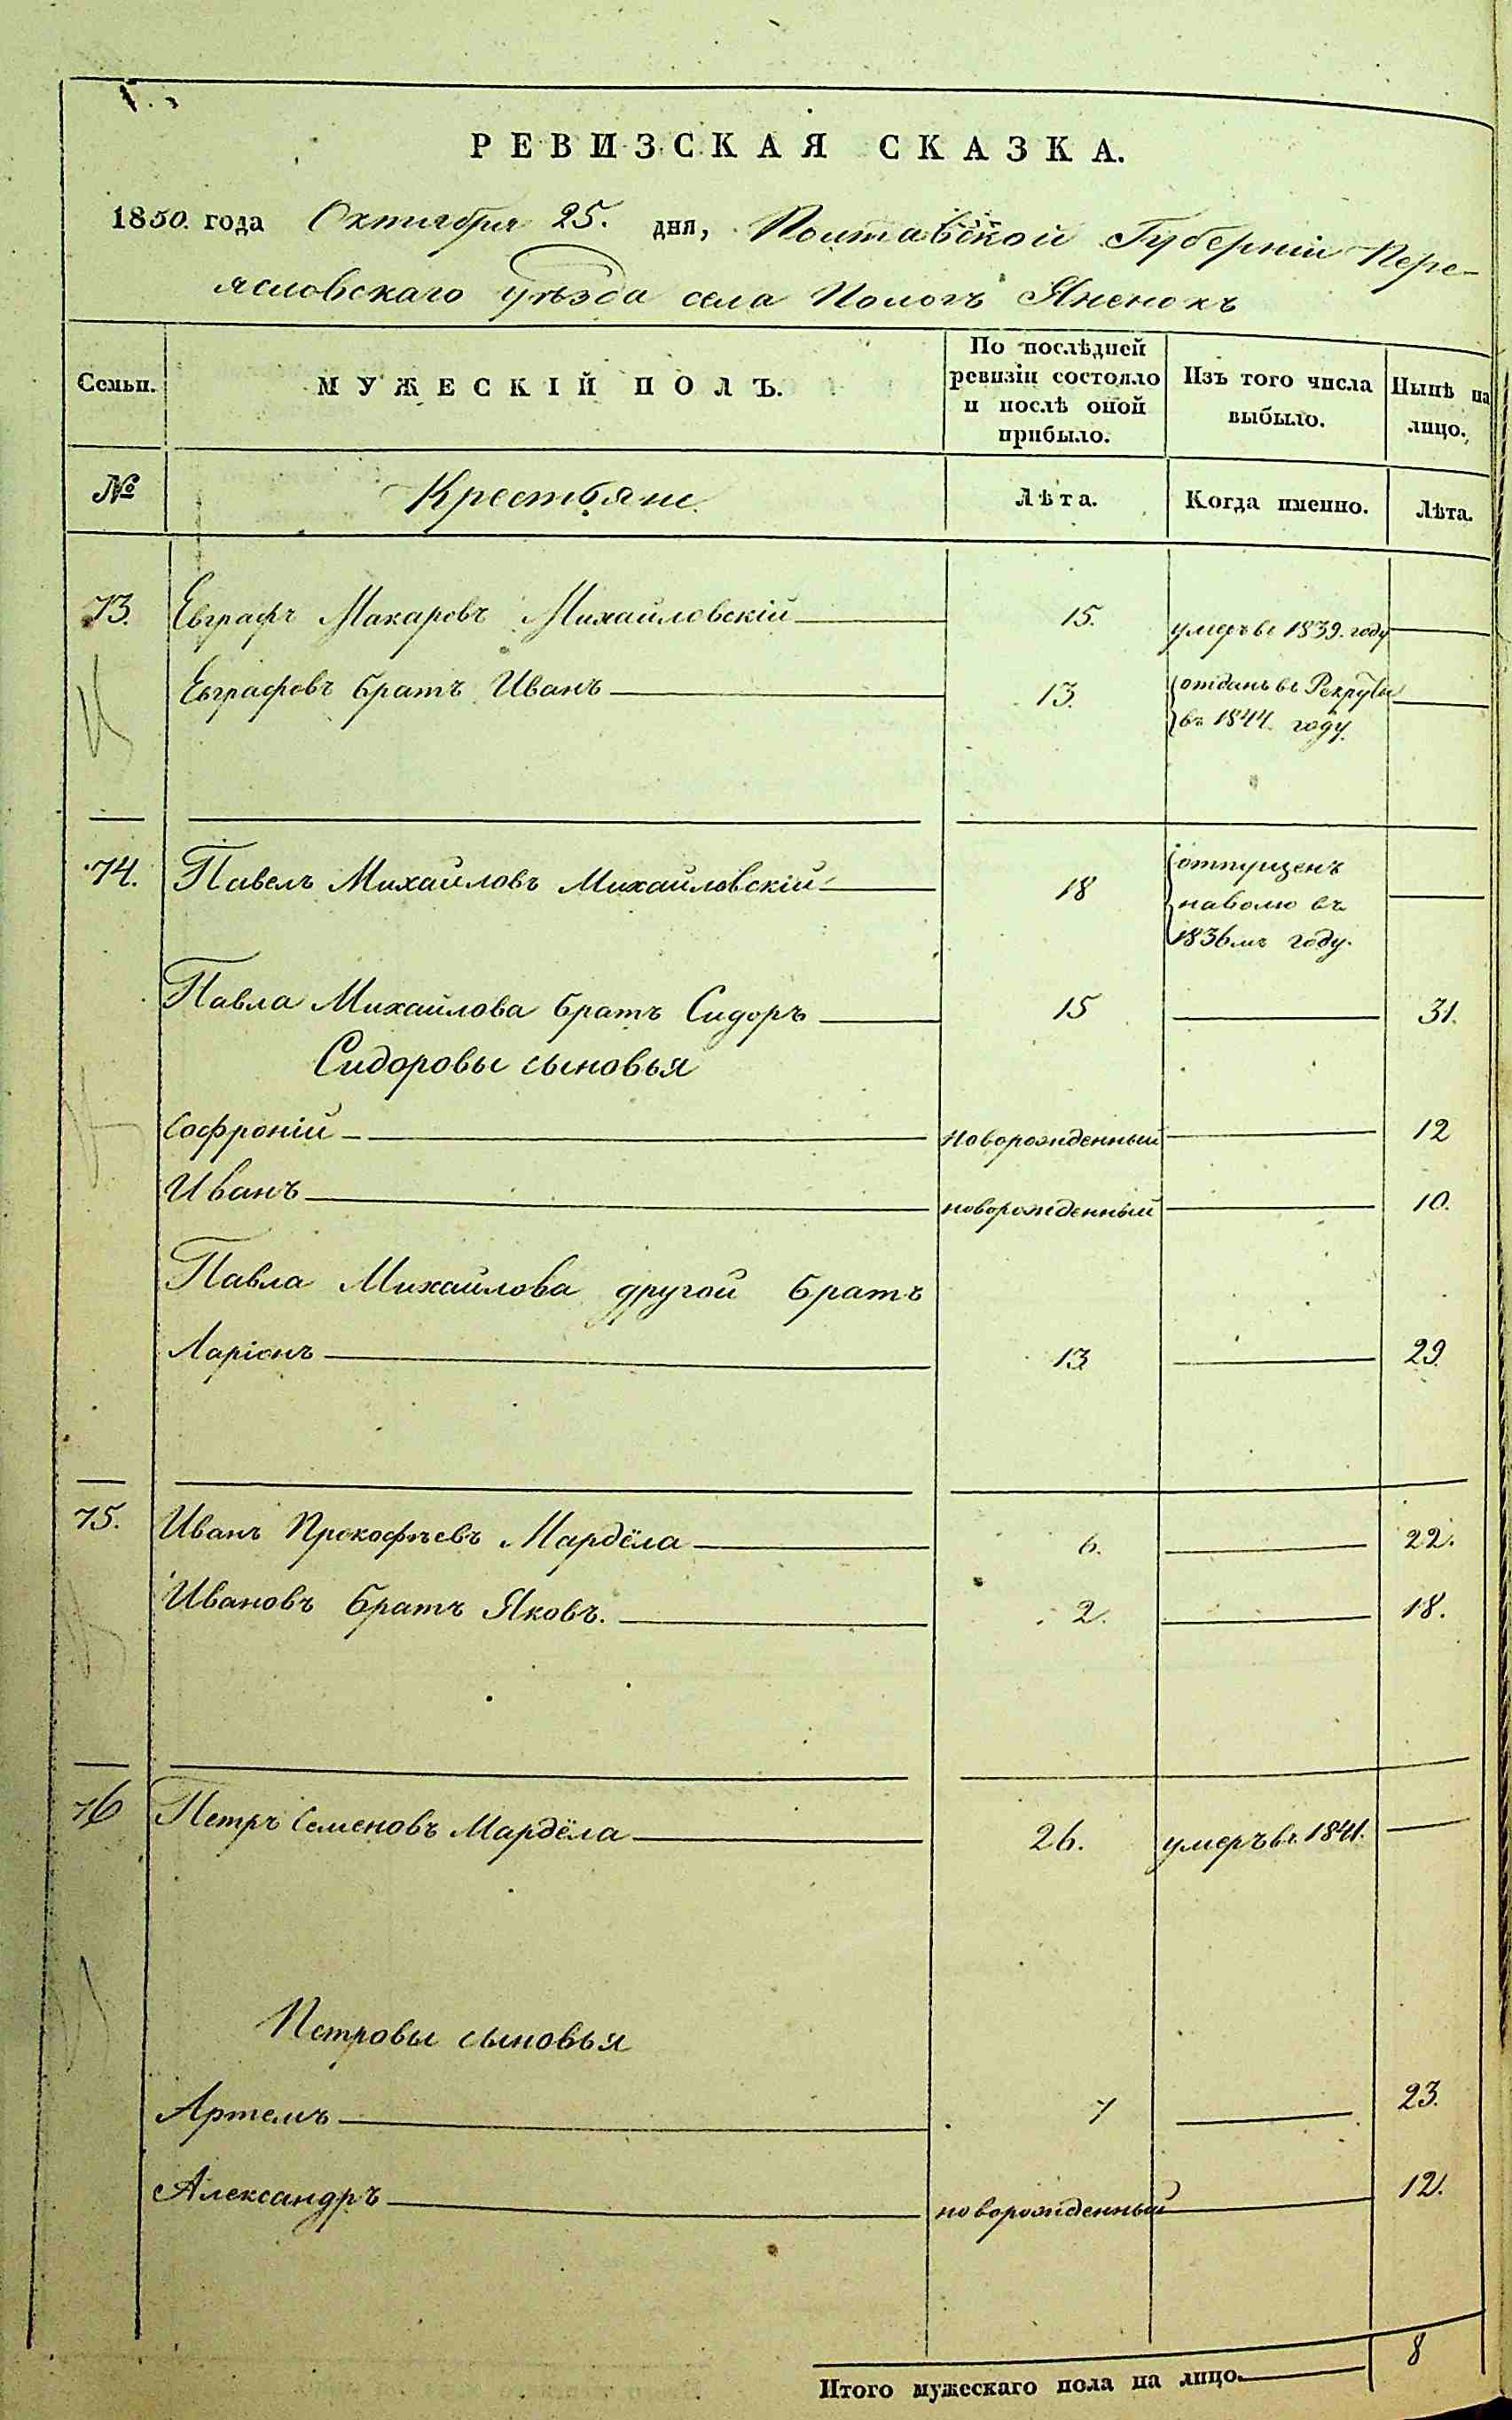 РЕВИЗСКАЯ СКАЗКА.
1850. года Октября 25. дня, Полтавской Губерніи Пере-
ясловскаго уѣзда села Пологъ Яненокъ
Семьи. МУЖЕСКІЙ ПОЛЪ. По послѣдней ревизіи состояло и послѣ оной прибыло. Изъ того числа выбыло. Нынѣ на лицо.
№ Крестьяне Лѣта. Когда именно. Лѣта.
73. Евграфъ Макаровъ Михайловскій 15. умеръ въ 1839. году
Евграфовъ братъ Иванъ 13. отданъ въ Рекруты
въ 1844. году.
74. Павелъ Михайловъ Михайловскій 18 отпущенъ
наволю въ
1836мъ году.
Павла Михайлова братъ Сидоръ 15 31.
Сидоровы сыновья
Софроній новорожденный 12
Иванъ новорожденный 10.
Павла Михайлова другой братъ
Ларіонъ 13 29
75. Иванъ Прокофьевъ Мардёла 6. 22.
Ивановъ братъ Яковъ. 2. 18.
76 Петръ Семеновъ Мардёла 26. умеръ въ 1841.
Петровы сыновья
Артемъ 7 23.
Александръ новорожденный 12.
Итого мужескаго пола на лицо 8